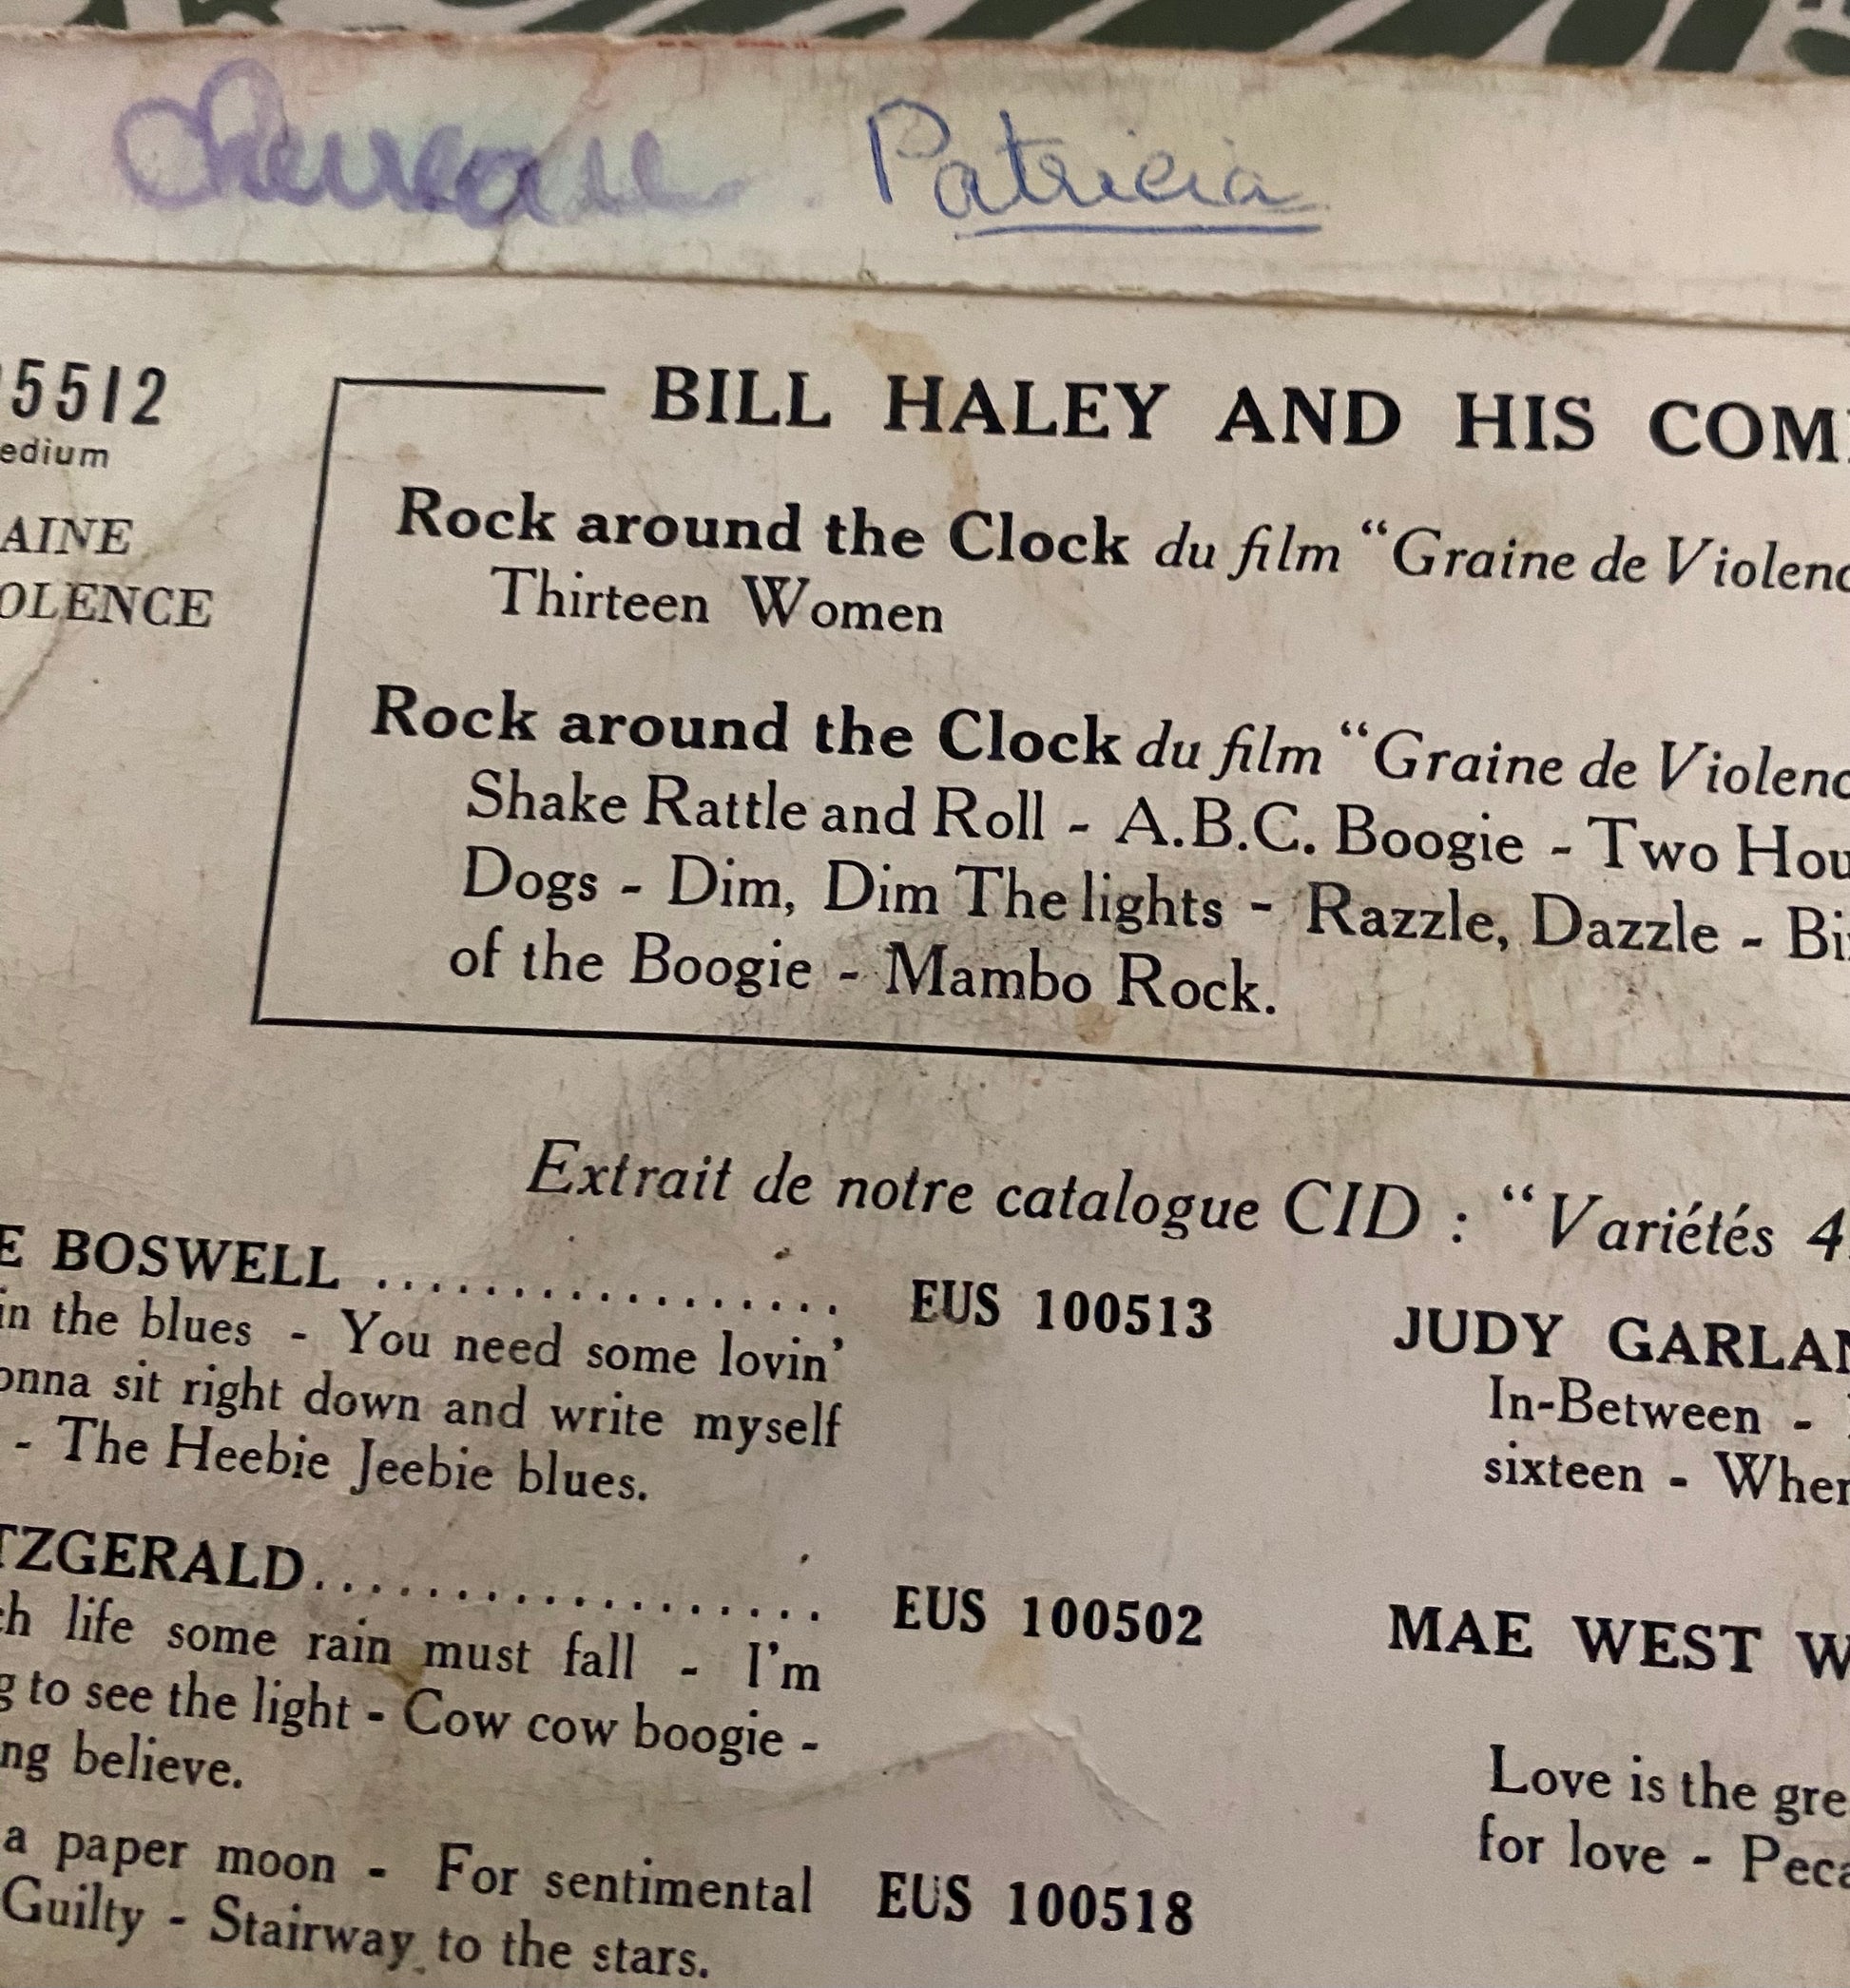 Patricia
5512
edium
AINE
OLENCE
BILL HALEY AND HIS COM
Rock around the Clock du film “Graine de Violenc
Thirteen Women
Rock around the Clock du film “Graine de Violenc
Shake Rattle and Roll - A.B.C. Boogie - Two Hou
Dogs - Dim, Dim The lights - Razzle, Dazzle - Bi
of the Boogie - Mambo Rock.
Extrait de notre catalogue CID : “Variétés 4
E BOSWELL .................. EUS 100513
in the blues - You need some lovin’
onna sit right down and write myself
- The Heebie Jeebie blues.
TZGERALD.................... EUS 100502
ch life some rain must fall - I’m
g to see the light - Cow cow boogie -
ng believe.
a paper moon - For sentimental EUS 100518
Guilty - Stairway to the stars.
JUDY GARLAN
In-Between -
sixteen - When
MAE WEST W
Love is the gre
for love - Peca